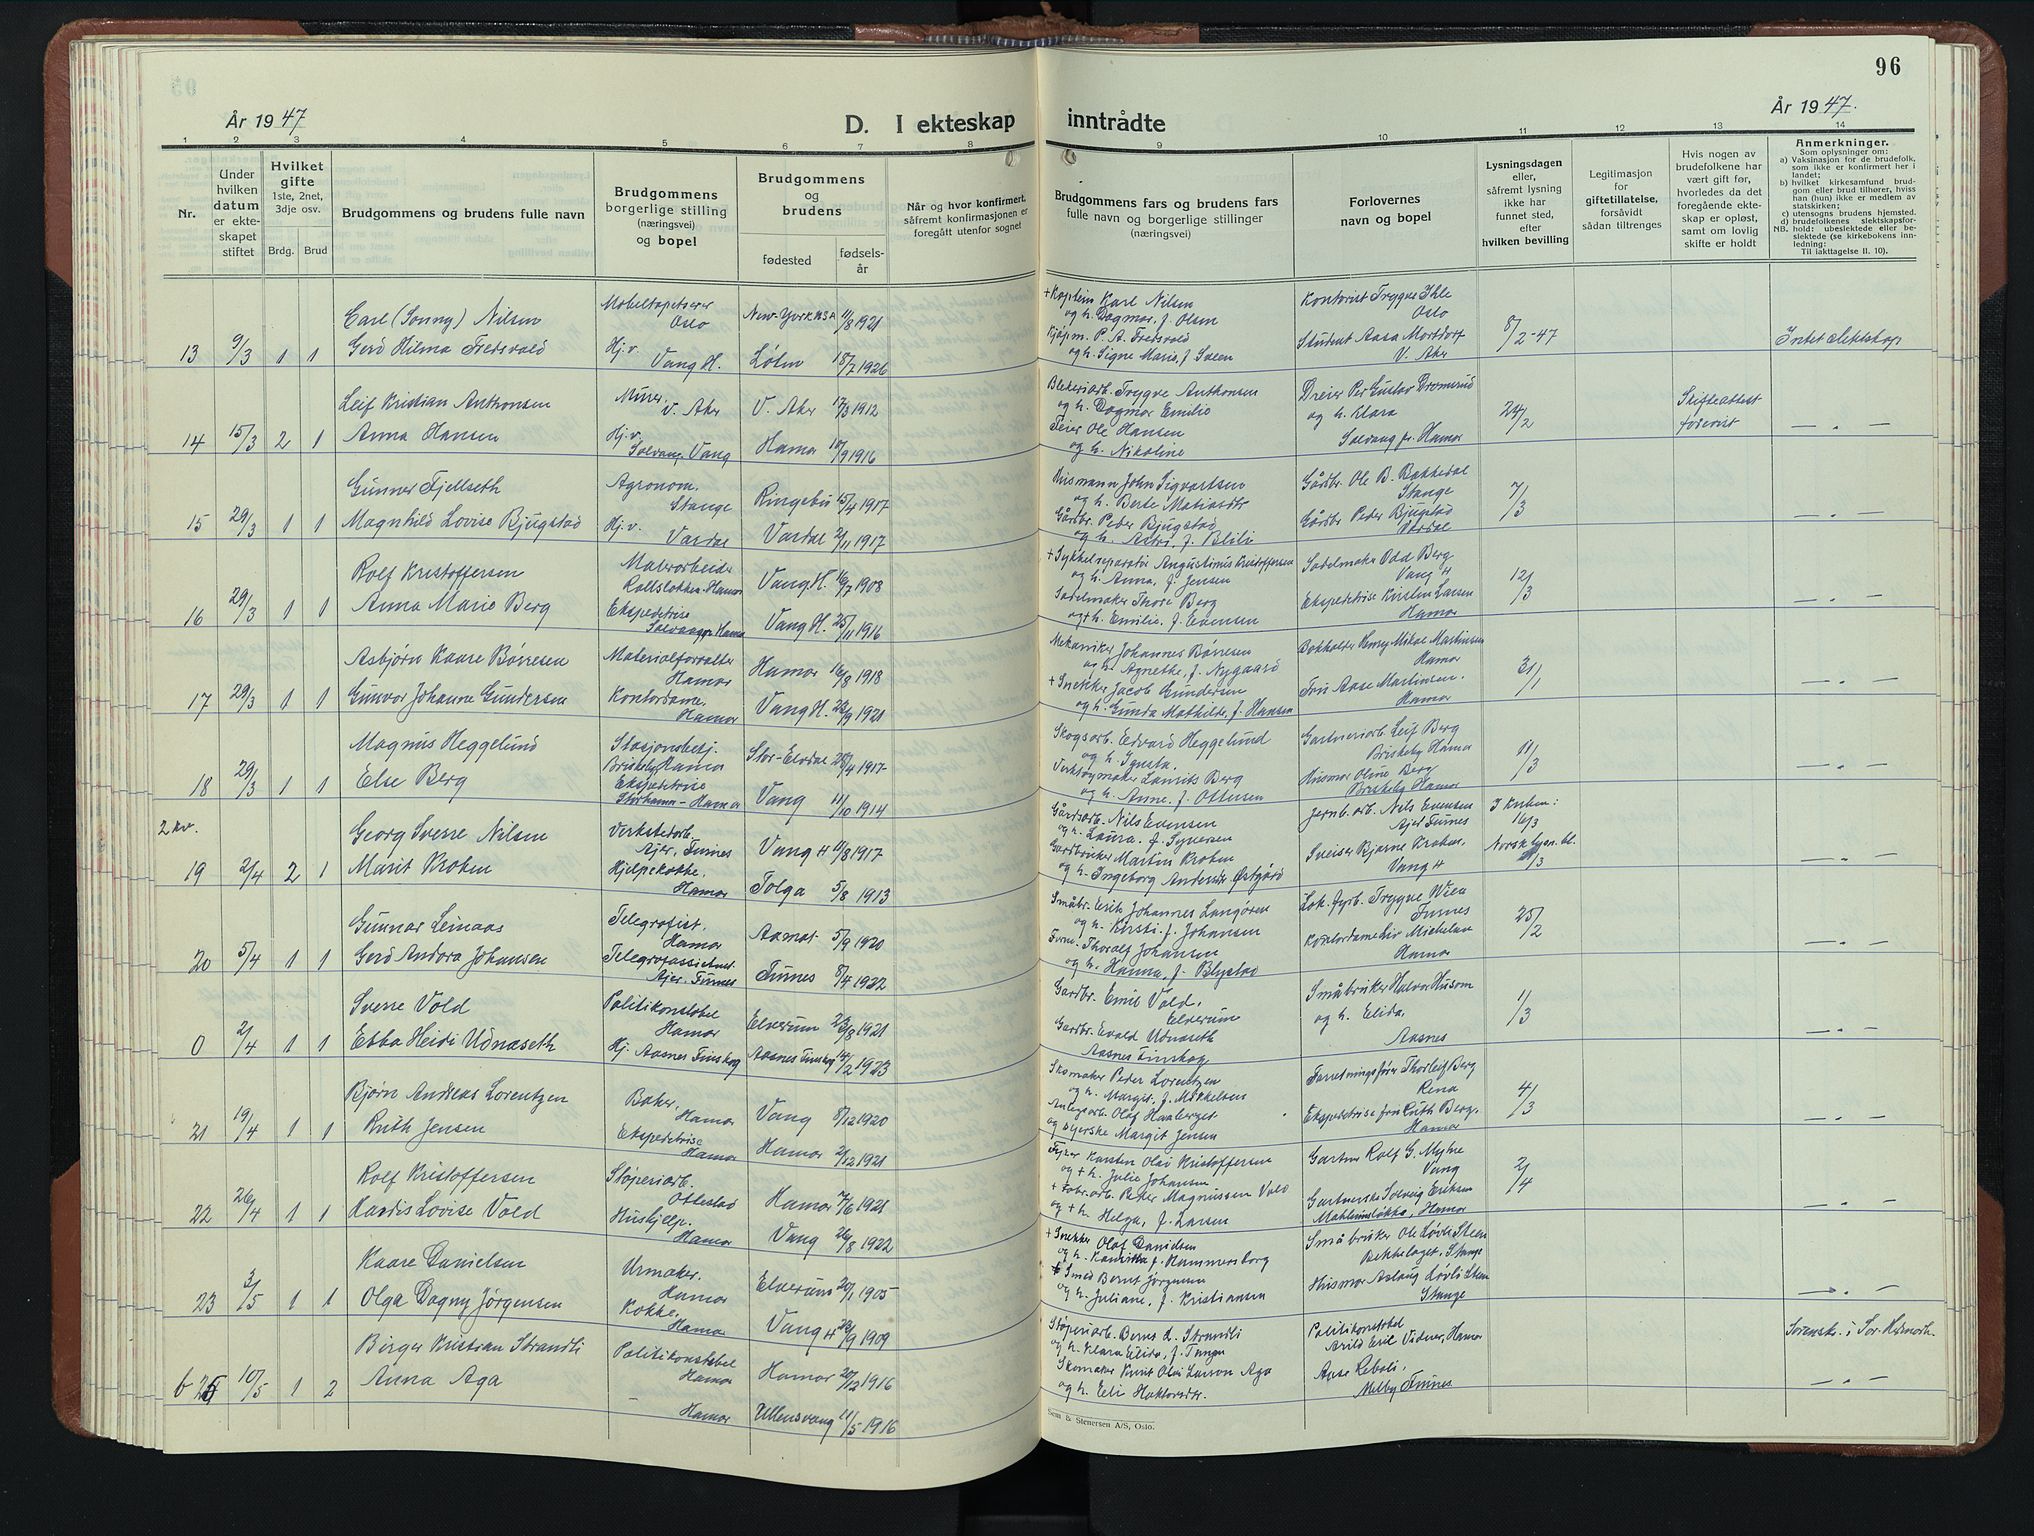 96
År 1947
D. I ekteskap
inntrådte
År 1947.
1 2 3 4 5 6 7 8 9 10 11 12 13 14
Nr.
Under
hvilken
datum
er ekte-
skapet
stiftet
Hvilket
gifte
1ste, 2net,
3dje osv.
Brdg. Brud
Brudgommens og brudens fulle navn
Brudgommens
borgerlige stilling
(næringsvei)
og bopel
Brudgommens
og
brudens
fødested
fødsels-
år
Når og hvor konfirmert,
såfremt konfirmasjonen er
foregått utenfor sognet
Brudgommens fars og brudens fars
fulle navn og borgerlige stillinger
(næringsvei)
Forlovernes
navn og bopel
Lysningsdagen
eller,
såfremt lysning
ikke har
funnet sted,
efter
hvilken bevilling
Legitimasjon
for
giftetillatelse,
forsåvidt
sådan tiltrenges
Hvis nogen av
brudefolkene har
vært gift før,
hvorledes da det
foregående ekte-
skap er opløst,
samt om lovlig
skifte er holdt
Anmerkninger.
Som oplysninger om:
a) Vaksinasjon for de brudefolk,
som ikke er konfirmert her i
landet;
b) hvilket kirkesamfund brud-
gom eller brud tilhører, hviss
han (hun) ikke er medlem av
statskirken;
c) utensogns brudens hjemsted.
d) brudefolkenes slektskapsfor-
NB. hold: ubeslektede eller be-
slektede (se kirkebokens inn-
ledning:
Til iakttagelse II. 10).
Carl (Sonny) Nilsen
Møbeltapetserer
Oslo
New-York USA 11/8 1921
+ Kaptein Karl Nilsen
og h. Dagmar, f. Olsen
Kontorist Trygve Ihle
Oslo
13 9/3 1 1 Gerd Hilma Fredsvold
Hj.v.
Vang H.
Løten 18/7 1926
Kjøpm. P. A. Fredsvold
og h. Signe Marie, f. Sveen
Student Aasa Mortdorf
V. Aker
8/2-47
Intet slektskap
Leif Kristian Anthonsen
Murer
V. Aker
V. Aker 17/3 1912
Blekeriarb. Trygve Anthonsen
og h. Dagmar Emilie
Dreier Per Gustav Dromsrud
og h. Klara
Solvang pr. Hamar
14 15/3 2 1 Anna Hansen
Hj.v.
Solvang, Vang
Hamar 10/9 1916
Feier Ole Hansen
og h. Nikoline
24/2
Skifteattest
forevist
— „ —
Gunnar Fjellseth
Agronom.
Stange
Ringebu 15/4 1917
Husmann John Sigvartsen
og h. Berte Matiasdtr
Gårdbr. Ole B. Bakkedal
Stange
15 29/3 1 1 Magnhild Lovise Bjugstad
Hj.v.
Vardal
Vardal 2/11 1917
Gårdbr. Peder Bjugstad
og h. Astri, f. Blili
Gårdbr Peder Bjugstad
Vardal
7/3
— „ —
Rolf Kristoffersen
Malerarbeider
Rollsløkken, Hamar
Vang H. 16/7 1908
+ Sykkelreparatør Angustinus Kristoffersen
og h. Anna, f. Jensen
Sadelmaker Odd Berg
Vang H
16 29/3 1 1 Anna Marie Berg
Ekspeditrise
Solvang pr. Hamar
Vang H. 25/11 1916
Sadelmaker Thore Berg
og + h. Emilie, f. Evensen
Ekspeditrise Kirsten Larsen
Hamar
12/3
— „ —
Asbjørn Kaare Børresen
Materialforvalter
Hamar
Hamar 16/8 1918
Mekaniker Johannes Børresen
og h. Agnethe, f. Nygaard
Bokholder Henry Mikal Martinsen
Hamar
17 29/3 1 1 Gunvor Johanne Gundersen
Kontordame.
Hamar
Vang H. 23/9 1921
+ Snekker Jacob Gundersen
og h. Gunda Mathilde, f. Hansen
Fru Aase Martinsen.
Hamar
31/1
— „ —
Magnus Heggelund
Stasjonsbetj.
Briskeby, Hamar
Stor-Elvdal 25/4 1917
Skogsarb. Edvard Heggelund
og h. Jensta.
Gartneriarb Leif Berg
Briskeby Hamar
18 29/3 1 1 Else Berg
Ekspeditrise
Storhamar - Hamar
Vang 11/10 1914
Verktøymaker Laurits Berg
og h. Anne, f. Ottesen
Husmor Oline Berg
Briskeby Hamar
11/3
— „ —
2 kv.
Georg Sverre Nilsen
Verkstedarb.
Ajer, Furnes
Vang H 11/8 1917
Gårdsarb. Nils Evensen
og h. Laura, f. Syversen
Jernb. arb. Nils Evensen
Ajer Furnes
19 2/4 2 1 Marit Kroken
Hjelpekokke.
Hamar
Tolga 5/8 1913
Gardbruker Martin Kroken
og h. Ingeborg Andersdtr Østgård
Sveiser Bjarne Kroken,
Vang H
I kirken:
16/3
Norsk Lysn. bl.
— „ —
Gunnar Leinaas
Telegrafist,
Hamar
Aamot 5/9 1920
Småbr. Erik Johannes Langøren
og h. Kirsti f. Johansen
Lok. fyrb. Trygve Wien
Furnes
20 5/4 1 1 Gerd Andora Johansen
Telegrafassistent.
Ajer, Furnes
Furnes 8/4 1922
Form. Thoralf Johansen
og h. Hanna, f. Blystad
Kontordame Liv Mickelsen
Hamar
25/2
— „ —
Sverre Vold
Politikonstabel
Hamar
Elverum 23/8 1921
Gardbr. Emil Vold,
Elverum
Småbruker Halvor Husom
og h. Elida.
0 2/4 1 1 Ebba Heidi Udnæseth
Hj. Aasnes Finskog
Aasnes Finskog 14/2 1923
Gardbr. Evald Udnæseth
Aasnes Finskog
Aasnes
1/3
— „ —
Bjørn Andreas Lorentzen
Baker,
Hamar
Vang 8/12 1920
Skomaker Peder Lorentzen
og h. Margit, f. Mikkelsen
Forretningsfører Thorleif Berg
Rena
21 19/4 1 1 Ruth Jensen
Ekspeditrise
Hamar
Hamar 2/12 1921
Anlegsarb. Olaf Haaberget
og syerske Margit Jensen
Ekspeditrise fru Ruth Berg.
Hamar
4/3
— „ —
Rolf Kristoffersen
Støperiarb.
Ottestad
Hamar 7/6 1921
Karsten Olai Kristoffersen
og + h. Julie Johansen
Gartner Rolf G. Myhre
Vang
22 26/4 1 1 Hardis Lovise Vold
Hushjelp.
Hamar
Vang 26/8 1922
+ Fabr.arb. Peter Magnussen Vold
og + h. Helga, f. Larsen
Gartnerske Solveig Eriksen
Mahlumsløkka, Hamar
2/4
— „ —
Kaare Danielsen
Urmaker.
Hamar
Elverum 20/1 1905
+ Snekker Olaf Davidsen
og h. Kandikka f. Hammersborg
Småbruker Ole Løvli Steen
Bekkelaget, Stange
23 3/5 1 1 Olga Dagny Jørgensen
Kokke.
Hamar
Vang H 23/9 1909
+ Smed Bernt Jørgensen
og h. Juliane, f. Kristiansen
Husmor Aslaug Løvli Steen
Stange
— „ —
Birger Kristian Strandli
Politikonstabel
Hamar
Hamar 20/12 1916
Støperiarb. Bernt L. Strandli
og h. Klara Elida, f. Tangen
Politikonstabel
Arild Eril Vidner, Hamar
Sorenskr. i Sør-Hedmark.
b 25 10/5 1 2 Anna Aga
—
Hamar
Ullensvang 11/5 1916
Skomaker Knut Olai Larson Aga
og h. Eli Haktorsdtr.
Aase Reboli,
Melby Furnes
— „ —
Sem & Stenersen A/S, Oslo.